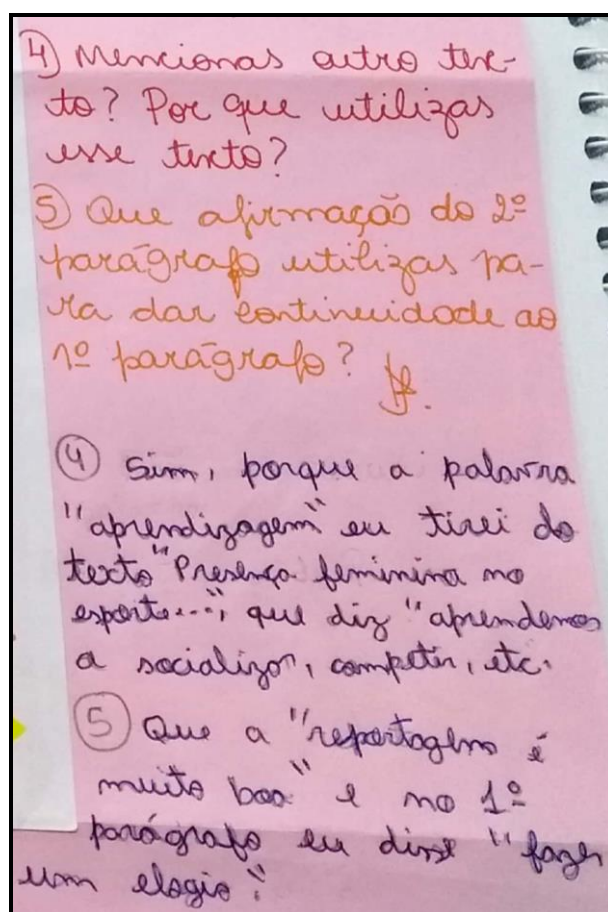 4) Mencionas outro tex-
to? Por que utilizas
esse texto?
5) Que afirmação do 2º
parágrafo utilizas pa-
ra dar continuidade ao
1º parágrafo?
4) Sim, porque a palavra
"aprendizagem" eu tirei do
texto "Presença feminina no
esporte...", que diz "aprendemos
a socializar, competir, etc.
5) Que a "reportagem é
muito boa" e no 1º
parágrafo eu disse "fazer
um elogio".